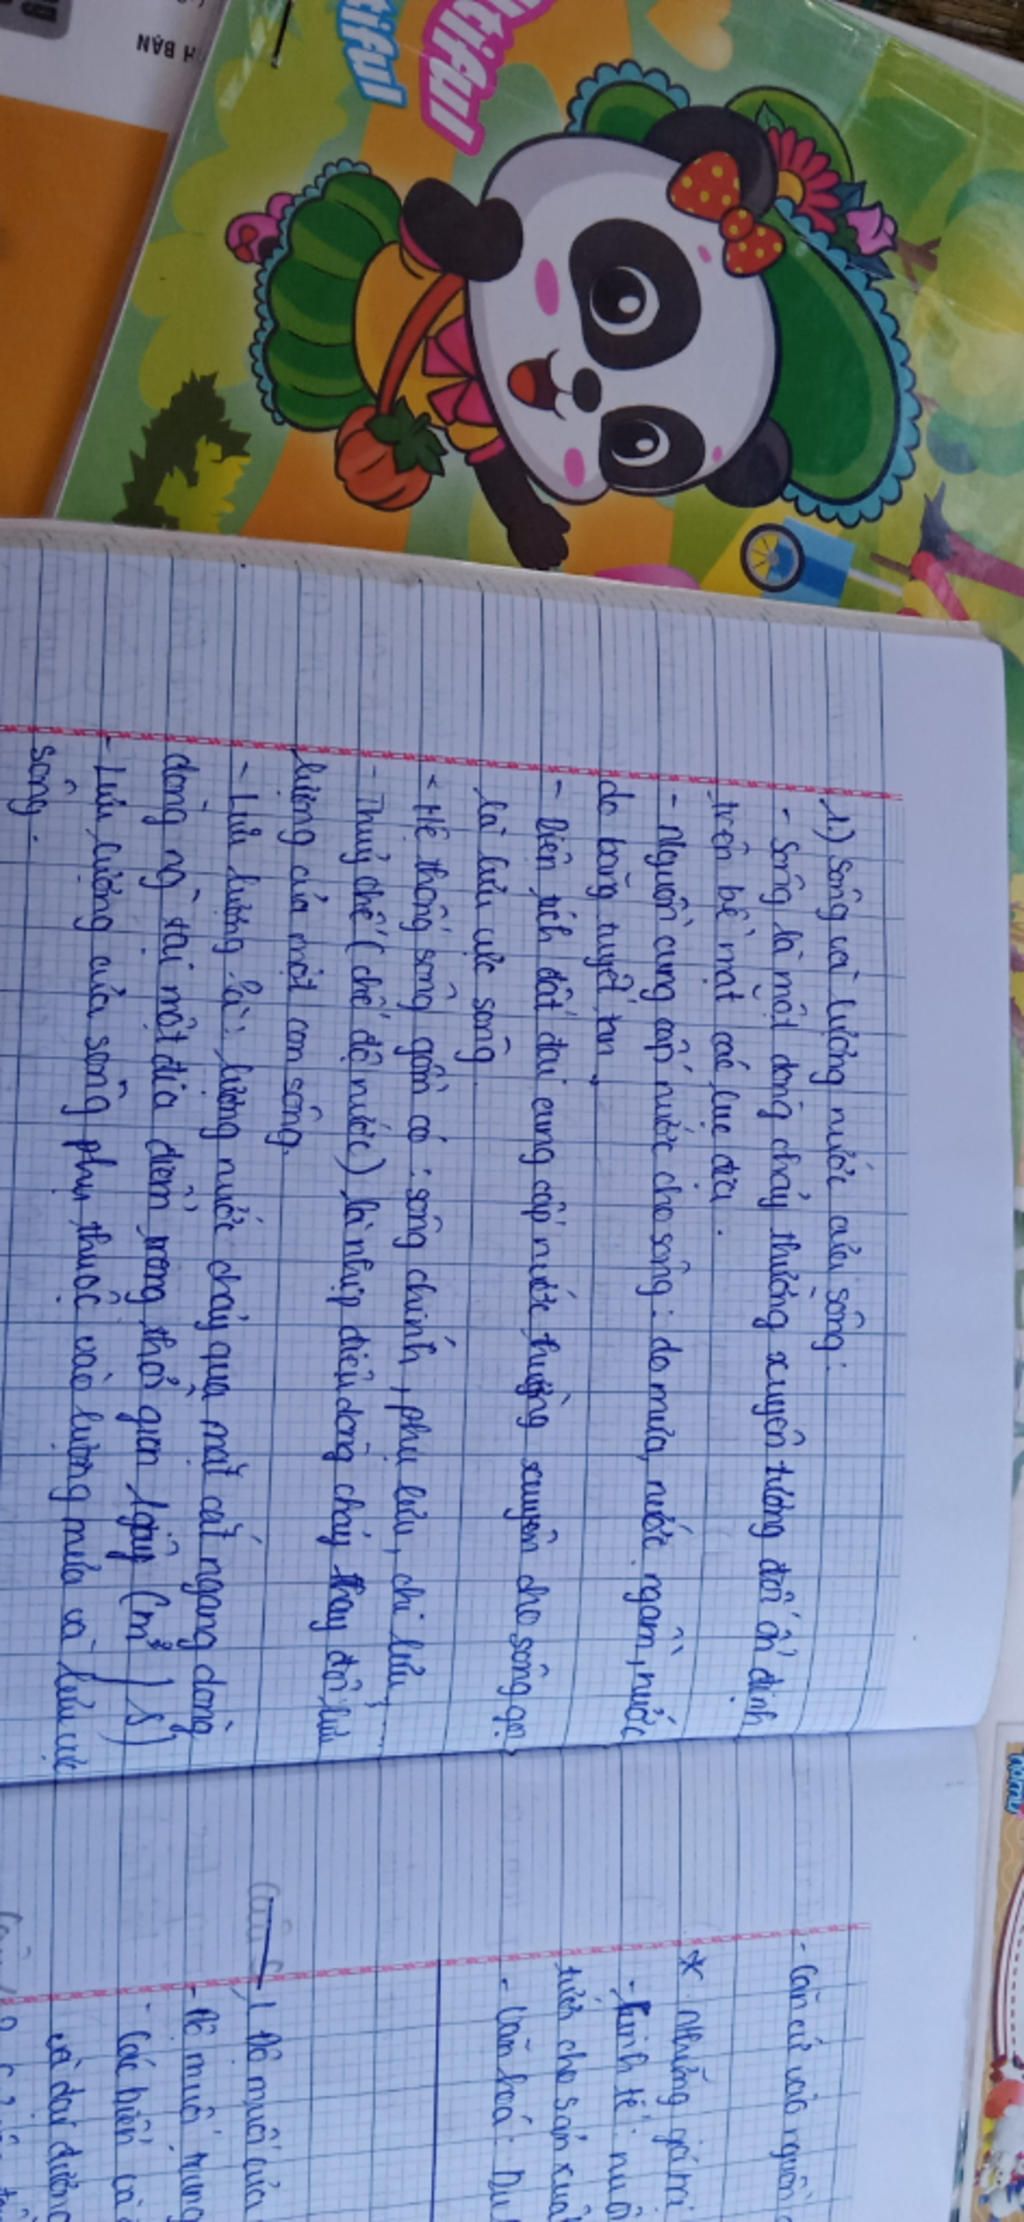 1.) Sông và lượng nước của sông:
- Sông là một dòng chảy thường xuyên tương đối ổn định
trên bề mặt các lục địa.
- Nguồn cung cấp nước cho sông: do mưa, nước ngầm, nước
do băng tuyết tan.
- Diện tích đất đai cung cấp nước thường xuyên cho sông gọi
là lưu vực sông.
- Hệ thống sông gồm có: sông chính, phụ lưu, chi lưu,...
- Thuỷ chế (chế độ nước) là nhịp điệu dòng chảy thay đổi lưu
lượng của một con sông.
- Lưu lượng là: lượng nước chảy qua mặt cắt ngang dòng
dòng ng tại một địa điểm trong thời gian 1 giây (m³/s)
- Lưu lượng của sông phụ thuộc vào lượng mưa và lưu vực
sông.
- Căn cứ vào nguồn
* Những giá trị
- Kinh tế: nuô
tưới cho sản xuấ
- Văn hoá: Du
1 Độ muối của
- Độ muối trung
- Các biển và
và đại dương
H BẢN
tiful
tiful